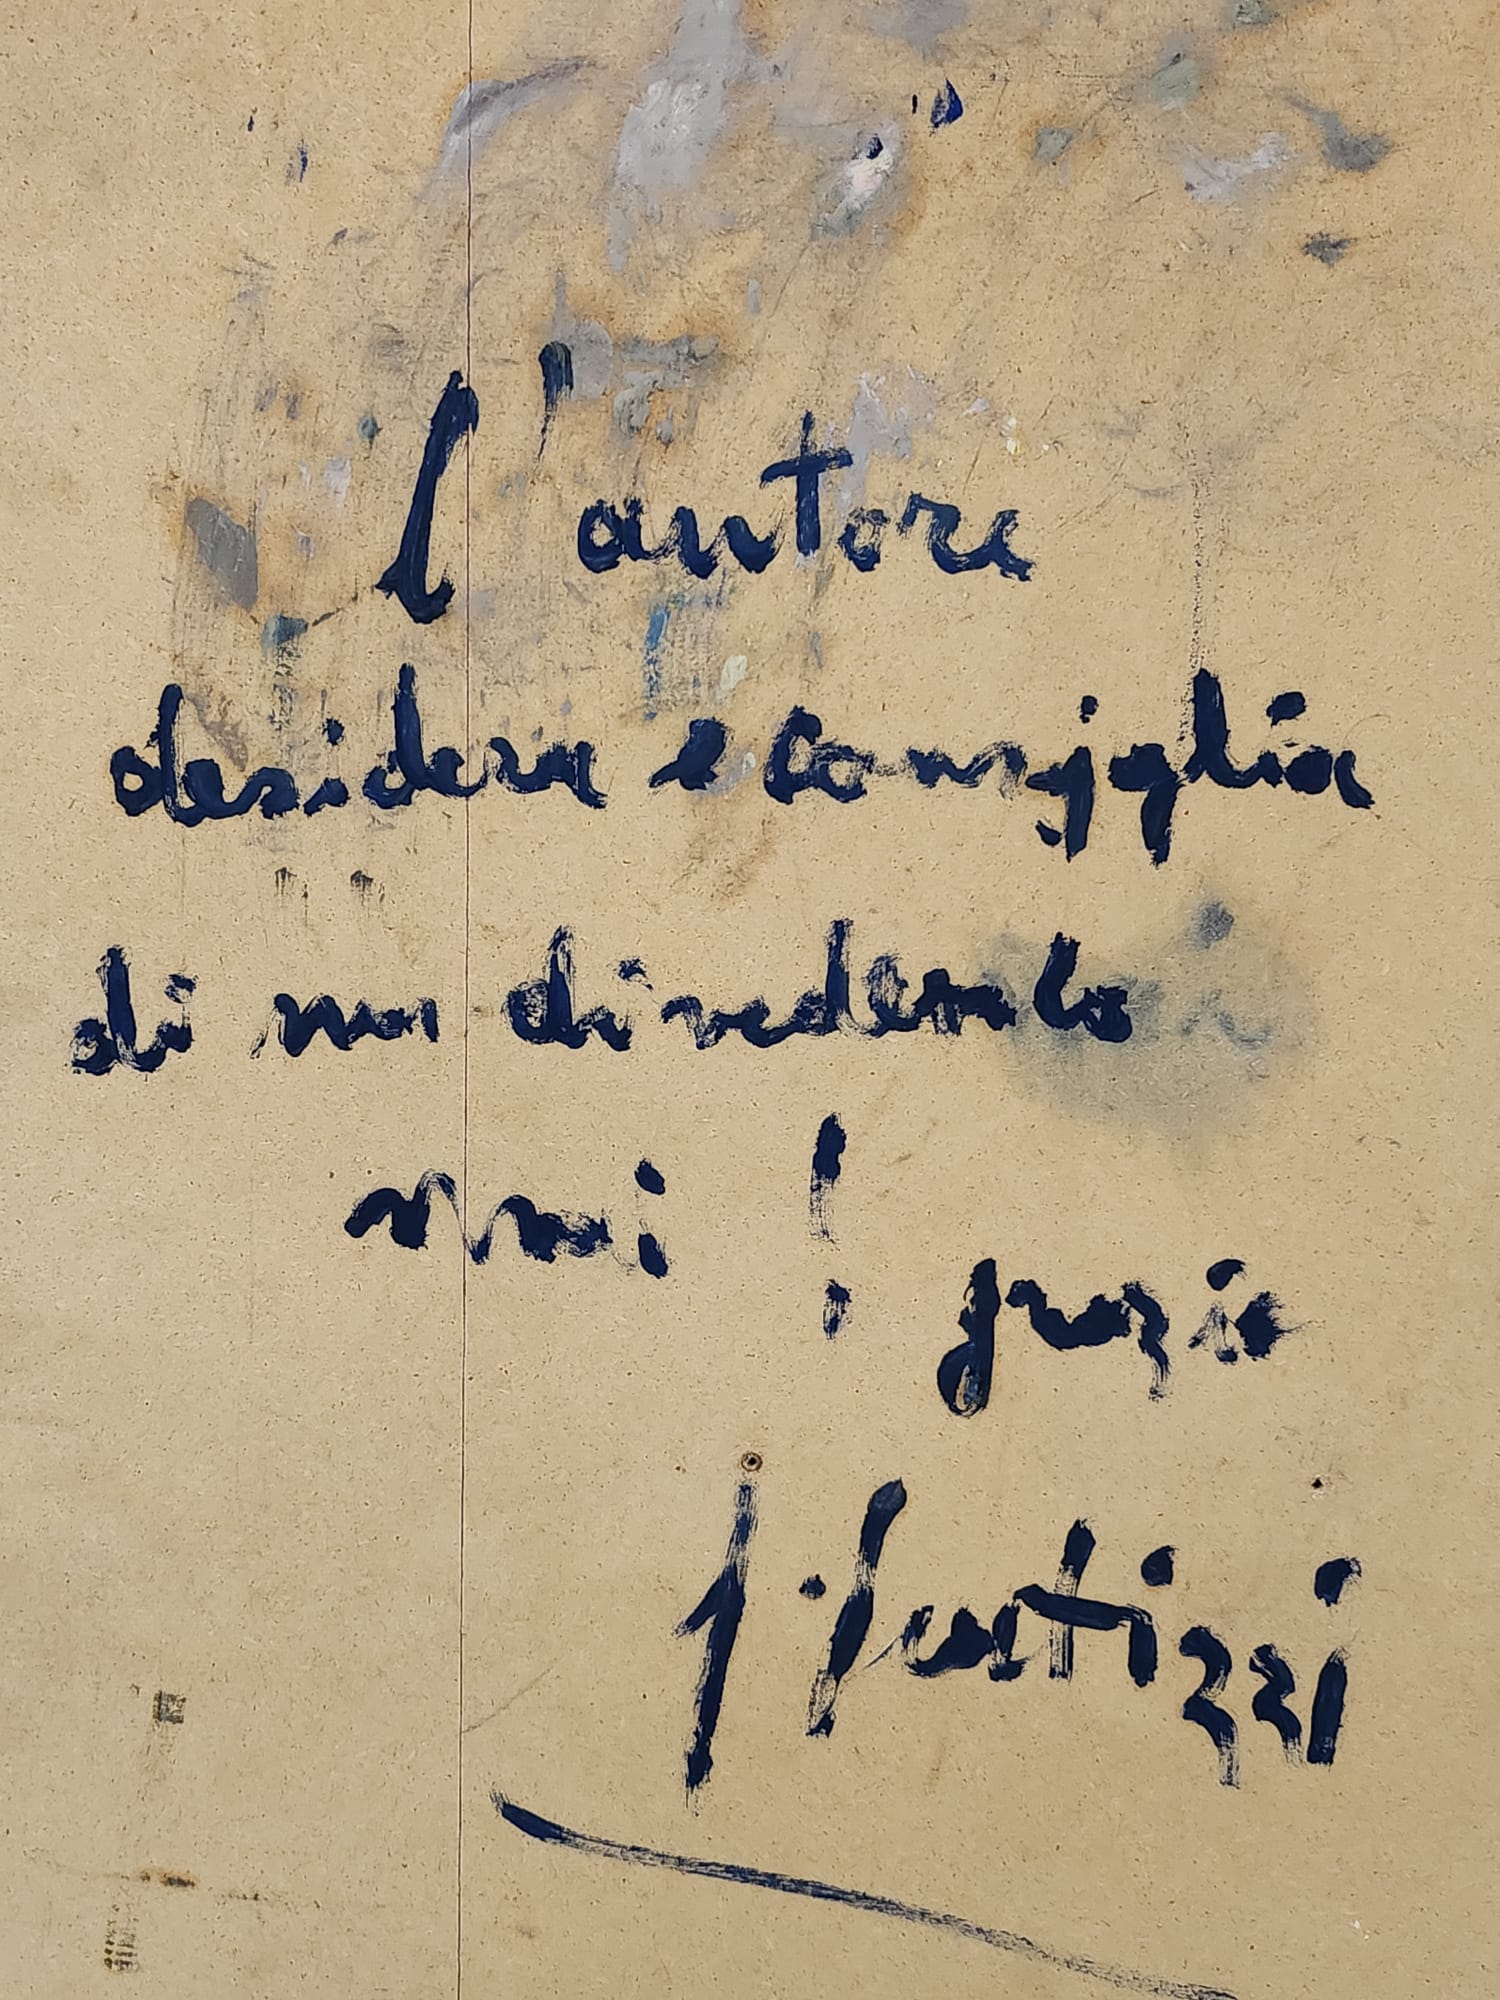 l'autore
desidera e consiglia
di non dividerlo
mai! grazie